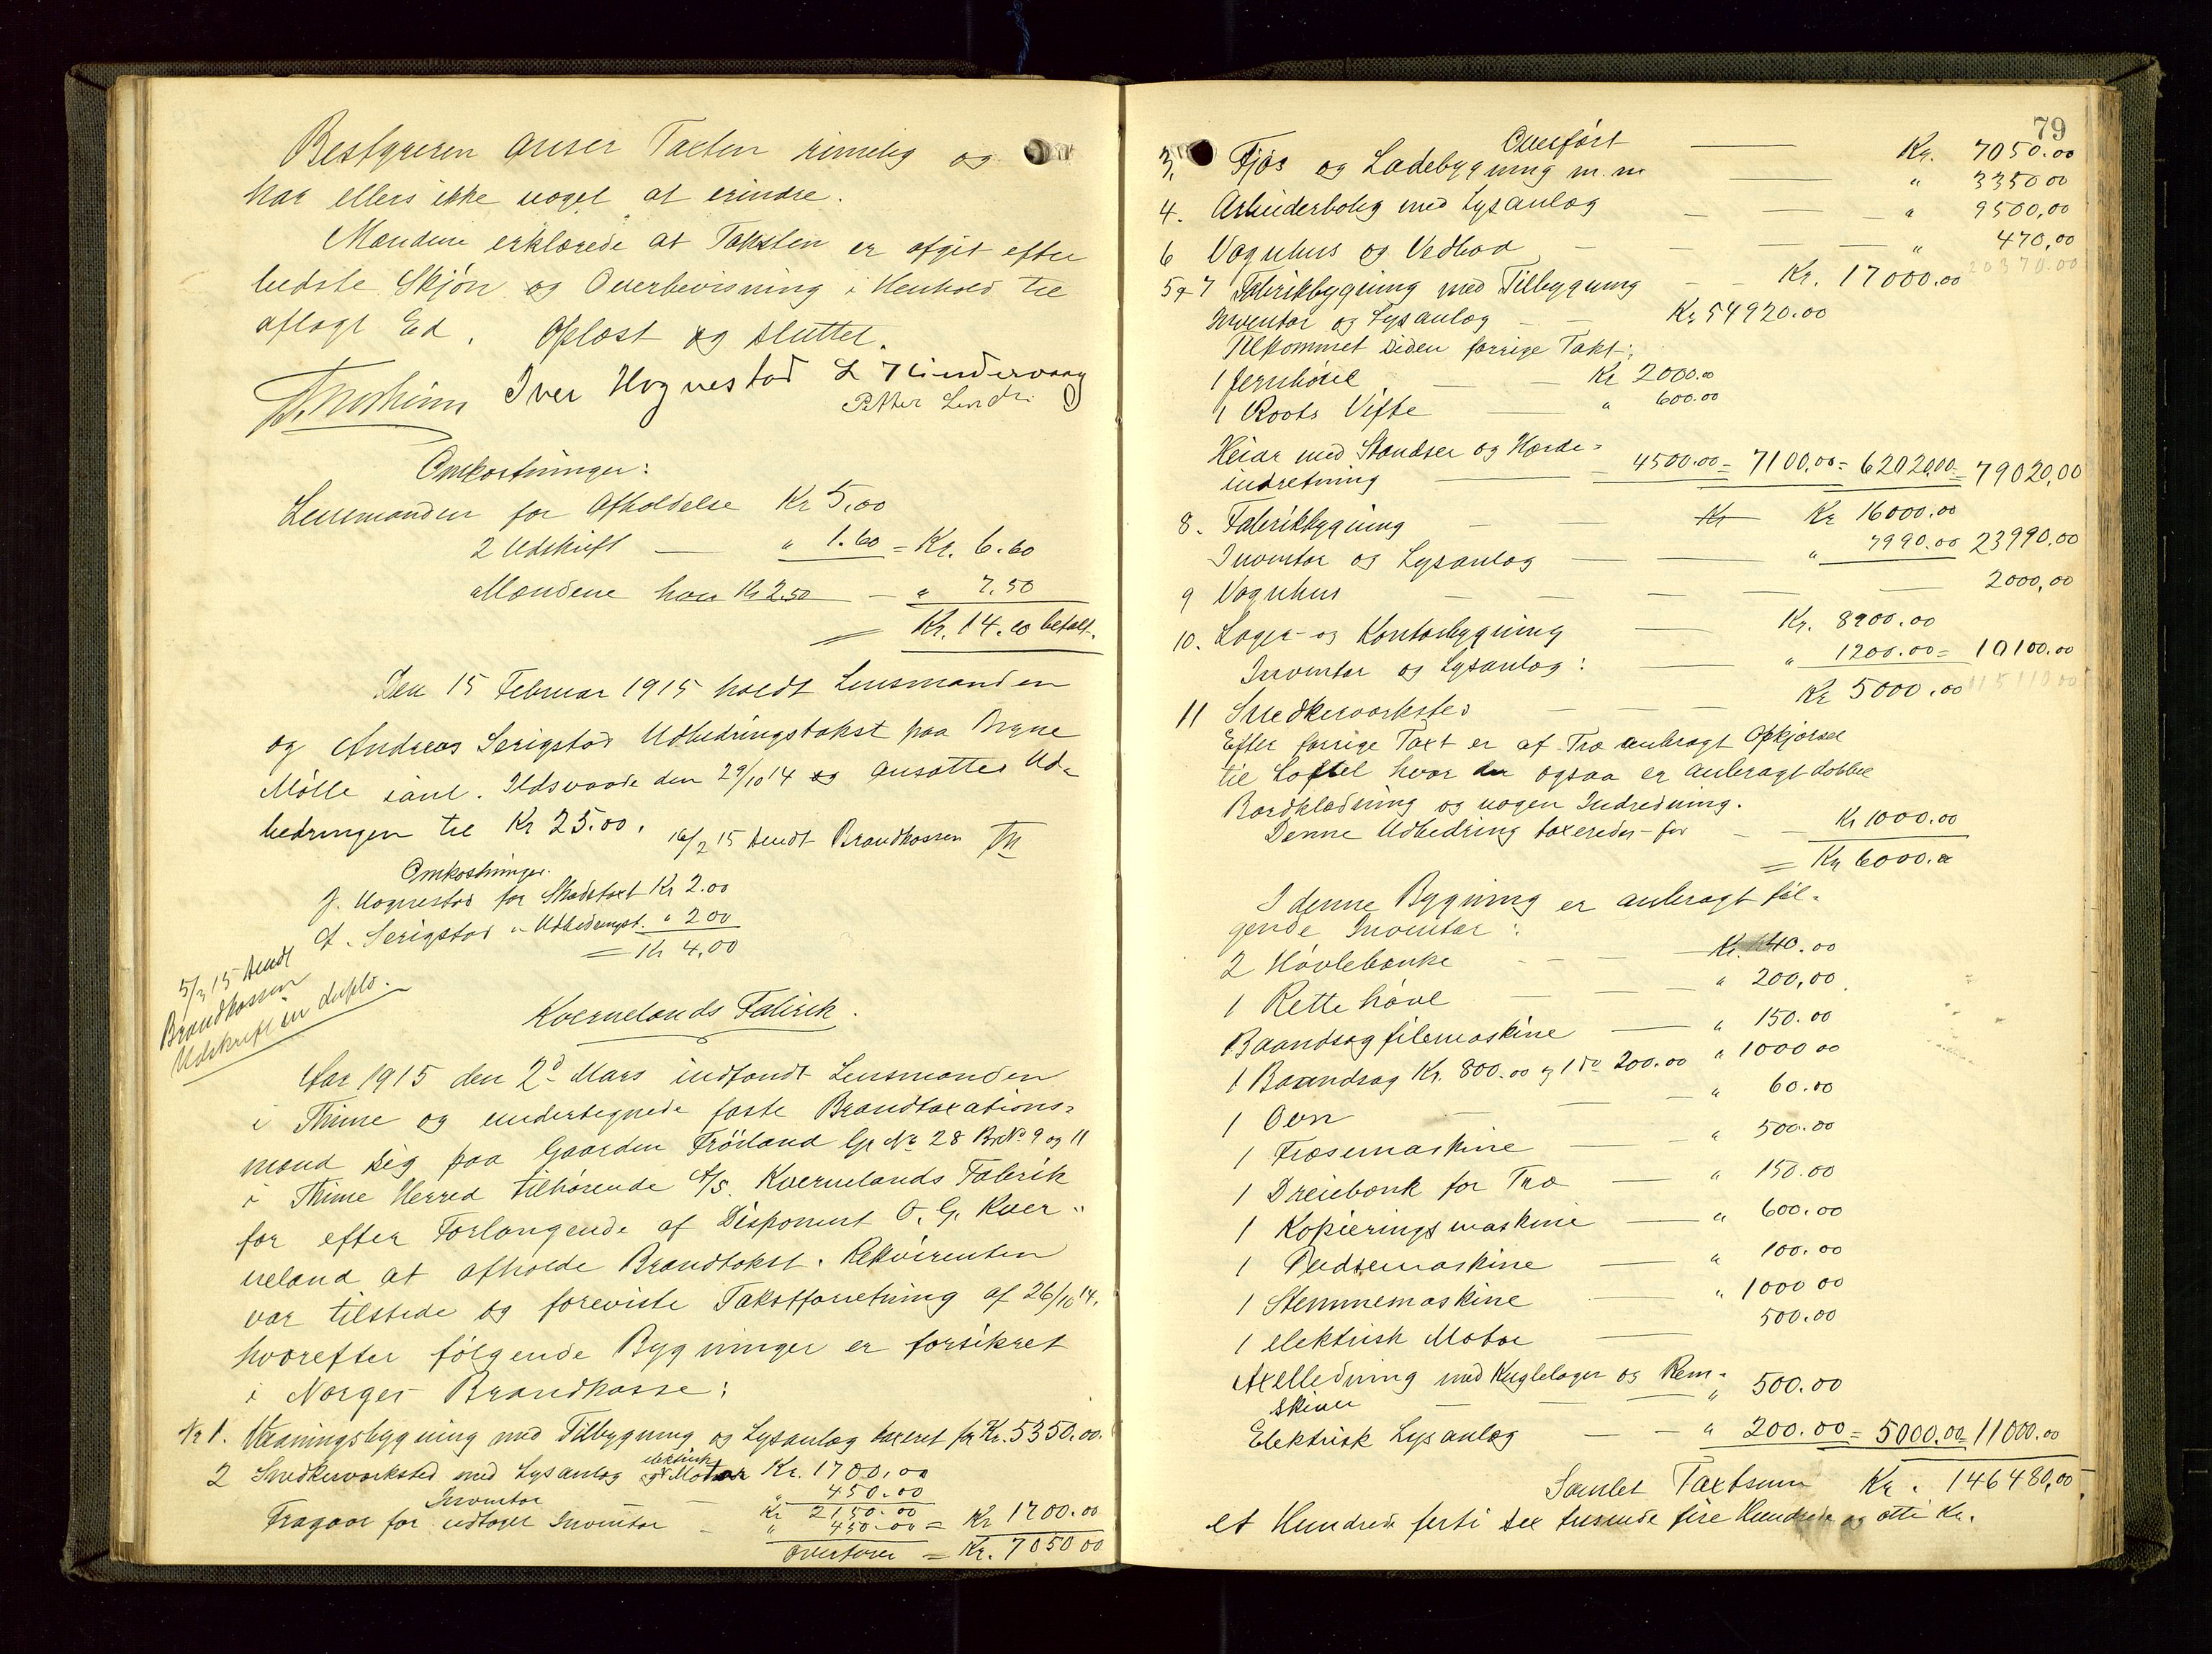 Bestyreren anser Taxten rimelig og
har ellers ikke noget at erindre.
Mændene erklærede at Taksten er afgit efter
bedste Skjøn og Overbevisning i Henhold til
aflagt Ed. Oplæst og sluttet.
Iver Hognestad
Omkostninger:
Lensmanden for Afholdelse Kr 5,00
2 Udskrift — " 1.60 = Kr. 6.60
Mændene hver Kr 2.50 — - " 7.50
= Kr. 14.10 betalt.
Den 15 Februar 1915 holdt Lensmanden
og Andreas Serigstad Udbedringstakst paa Bryne
Mølle i anl. Ildsvaade den 29/10 14 og ansattes Ud-
bedringen til Kr 25.00. 16/2 15 sendt Brandkassen
Omkostninger.
J. Hognestad for Skadetaxt Kr 2.00
A. Serigstad " Udbedringst. " 2 00
= Kr 4,00
5/3 15 sendt
Brandkassen
Udskrift in duplo.
Kvernelands Fabrik.
Aar 1915 den 2d Mars indfandt Lensmanden
i Thime og undertegnede faste Brandtaxations-
mænd sig paa Gaarden Frøiland Gr No 28 Br No 9 og 11
i Thime Herred tilhørende A/S. Kvernelands Fabrik
for efter Forlangende af Disponent O. G. Kver-
neland at afholde Brandtakst. Rekvirenten
var tilstede og foreviste Takstforretning af 26/10 14.
hvorefter følgende Bygninger er forsikret
i Norges Brandkasse:
No 1. Vaaningsbygning med Tilbygning og Lysanlæg taxeret for Kr. 5350.00.
2 Snedkerværksted med Lysanlæg og elektrisk Motor Kr. 1700,00
Inventar — " 450.00
Kr 2150.00
Fragaar for udtaget Inventar - " 450.00 = Kr 1700.00
Overføres = Kr. 7050 00
79
Overført — Kr. 7050.00
3. Fjøs og Ladebygning m.m — " 3350 00
4. Arbeiderbolig med Lysanlæg — " 9500,00
6 Vognhus og Vedbod — " 470,00
20370.00
5 & 7 Fabrikbygning med Tilbygning - - Kr. 17000.00
Inventar og Lysanlæg — Kr 54920.00
Tilkommet siden forrige Takt:
1 Jernhøvl — Kr 2000.00
1 Roots Vifte — " 600.00
Heiar med Standser og Hærde-
indretning — 4500.00 = 7100,00 = 62020,00 = 79020,00
8. Fabrikbygning — Kr Kr 16000.00
Inventar og Lysanlæg — " 7990.00 23990.00
9 Vognhus — 2000,00
10. Lager- og Kontorbygning — Kr. 8900.00
Inventar og Lysanlæg: — " 1200.00 = 10100.00
115110 00
11 Snedkerværksted — Kr 5000.00
Efter forrige Taxt er af Træ anbragt Opkjørsel
til Loftet hvor der ogsaa er anbragt dobbel
Bordklædning og nogen Indredning.
Denne Udbedring taxeredes for — Kr 1000.00
= Kr 6000.00
I denne Bygning er anbragt føl-
gende Inventar:
2 Høvlebænke — Kr. 40.00
1 Rettehøvl — " 200,00
Baandsagfilemaskine — " 150.00
1 Baandsag Kr. 800.00 og 1 do 200.00 " 1000 00
1 Ovn — " 60.00
1 Fræsemaskine — " 500.00
1 Dreiebænk for Træ — " 150.00
1 Kopieringsmaskine — " 600.00
1 Pudsemaskine — " 100.00
1 Stemmemaskine — " 1000 00
1 elektrisk Motor — 500.00
Axelledning med Kuglelager og Rem-
skiver — " 500.00
Elektrisk Lysanlæg — " 200.00 = 5000.00 = 11000.00
Samlet Taxtsum Kr. 146480,00.
et Hundrede førti sex tusende fire Hundrede og otti Kr.